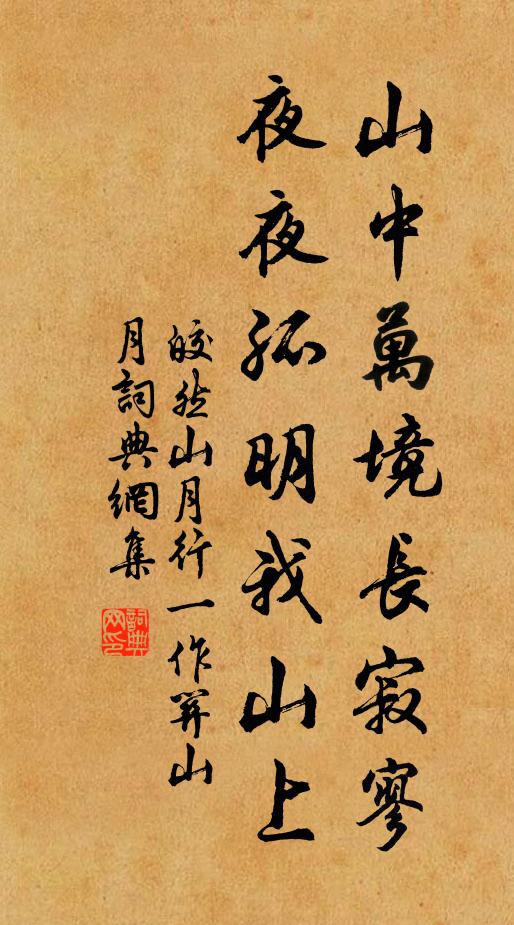 山中萬境長寂寥
夜夜孤明我山上
皎然山月行一作關山
月詞典網集
詞典
网印